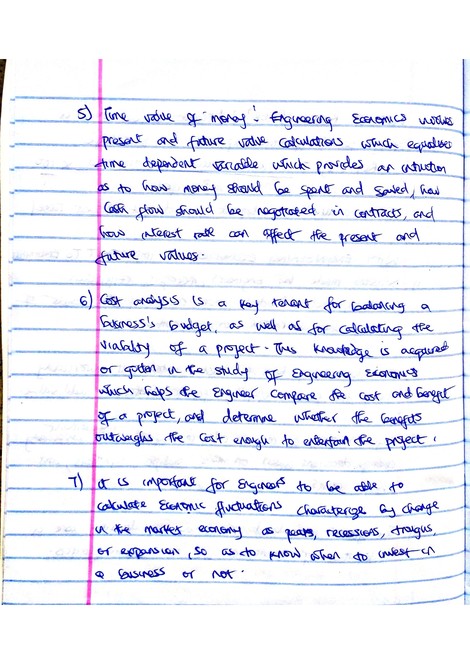 5) Time value of money: Engineering Economics involves
present and future value calculations which equalises
time dependent variable which provides an intuition
as to how money should be spent and saved, how
Cash flow should be negotiated in contracts, and
how interest rate can affect the present and
future values.
6) Cost analysis is a key tenant for balancing a
business's budget, as well as for calculating the
viability of a project. This knowledge is acquired
or gotten in the study of Engineering Economics
which helps the engineer compare the cost and benefit
of a project, and determine whether the benefits
outweighs the cost enough to entertain the project.
7) It is important for Engineers to be able to
calculate Economic fluctuations characterize by change
in the market economy as peaks, recessions, trougus,
or expansion, so as to know when to invest in
a business or not.